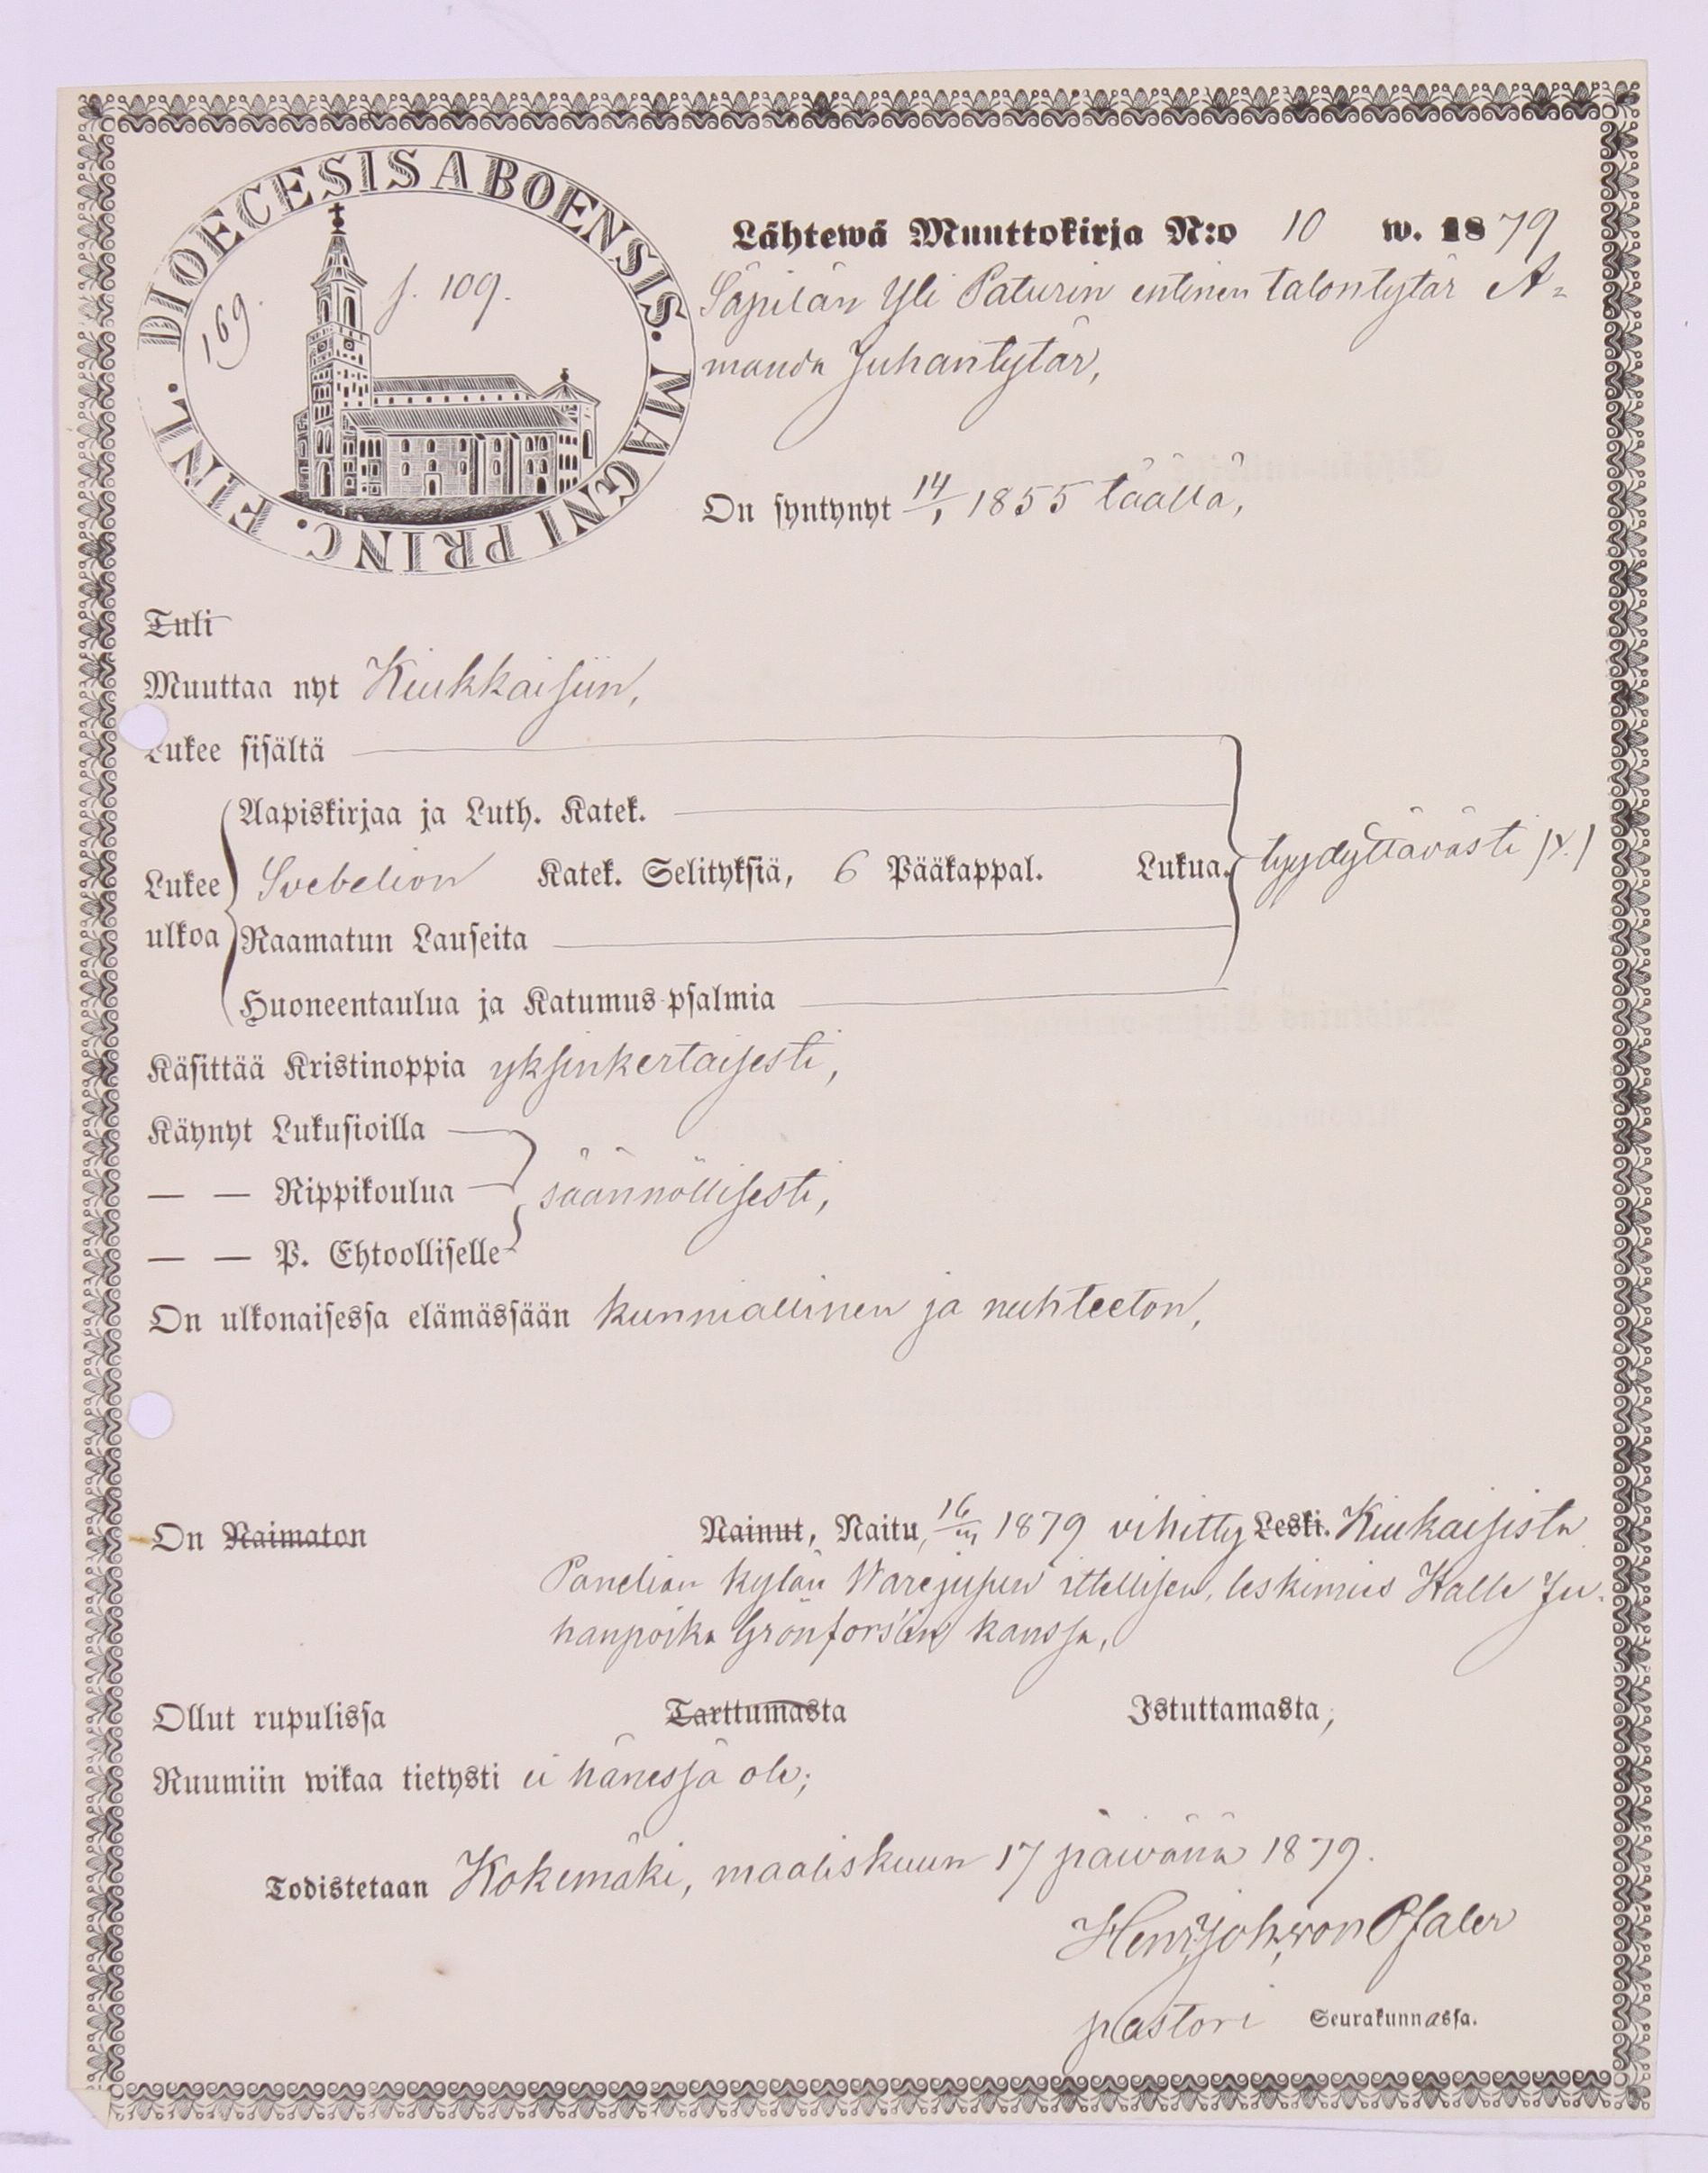 DIOECESIS ABOENSIS. MAGNI PRINC. FINL.
169.
f. 109.
Lähtewä Muuttokirja N:o 10 w. 1879
Säpilän Yli Paturin entinen talontytär A=
manda Juhantytär,
On syntynyt 14/1 1855 täällä,
Tuli
Muuttaa nyt Kiukkaisiin,
Lukee sisältä
Aapiskirjaa ja Luth. Katek.
Lukee ulkoa Svebelion Katek. Selityksiä, 6 Pääkappal. Lukua. tyydyttävästi
Raamatun Lauseita
Huoneentaulua ja Katumus-psalmia
Käsittää Kristinoppia yksinkertaisesti,
Käynyt Lukusioilla
— — Rippikoulua säännöllisesti,
— — P. Ehtoolliselle
On ulkonaisessa elämässään kunniallinen ja nuhteeton,
On Naimaton Nainut, Naitu, 16/III 1879 vihitty Leski. Kiukaisista
Panelian kylän ittellisen, leskimies Kalle Ju-
hanpoika Grönfors'in kanssa,
Ollut rupulissa Tarttumasta Istuttamasta,
Ruumiin wikaa tietysti ei hänessä ole;
Todistetaan Kokemäki, maaliskuun 17 päivänä 1879.
Henr. Joh. von Pfaler
pastori Seurakunnassa.